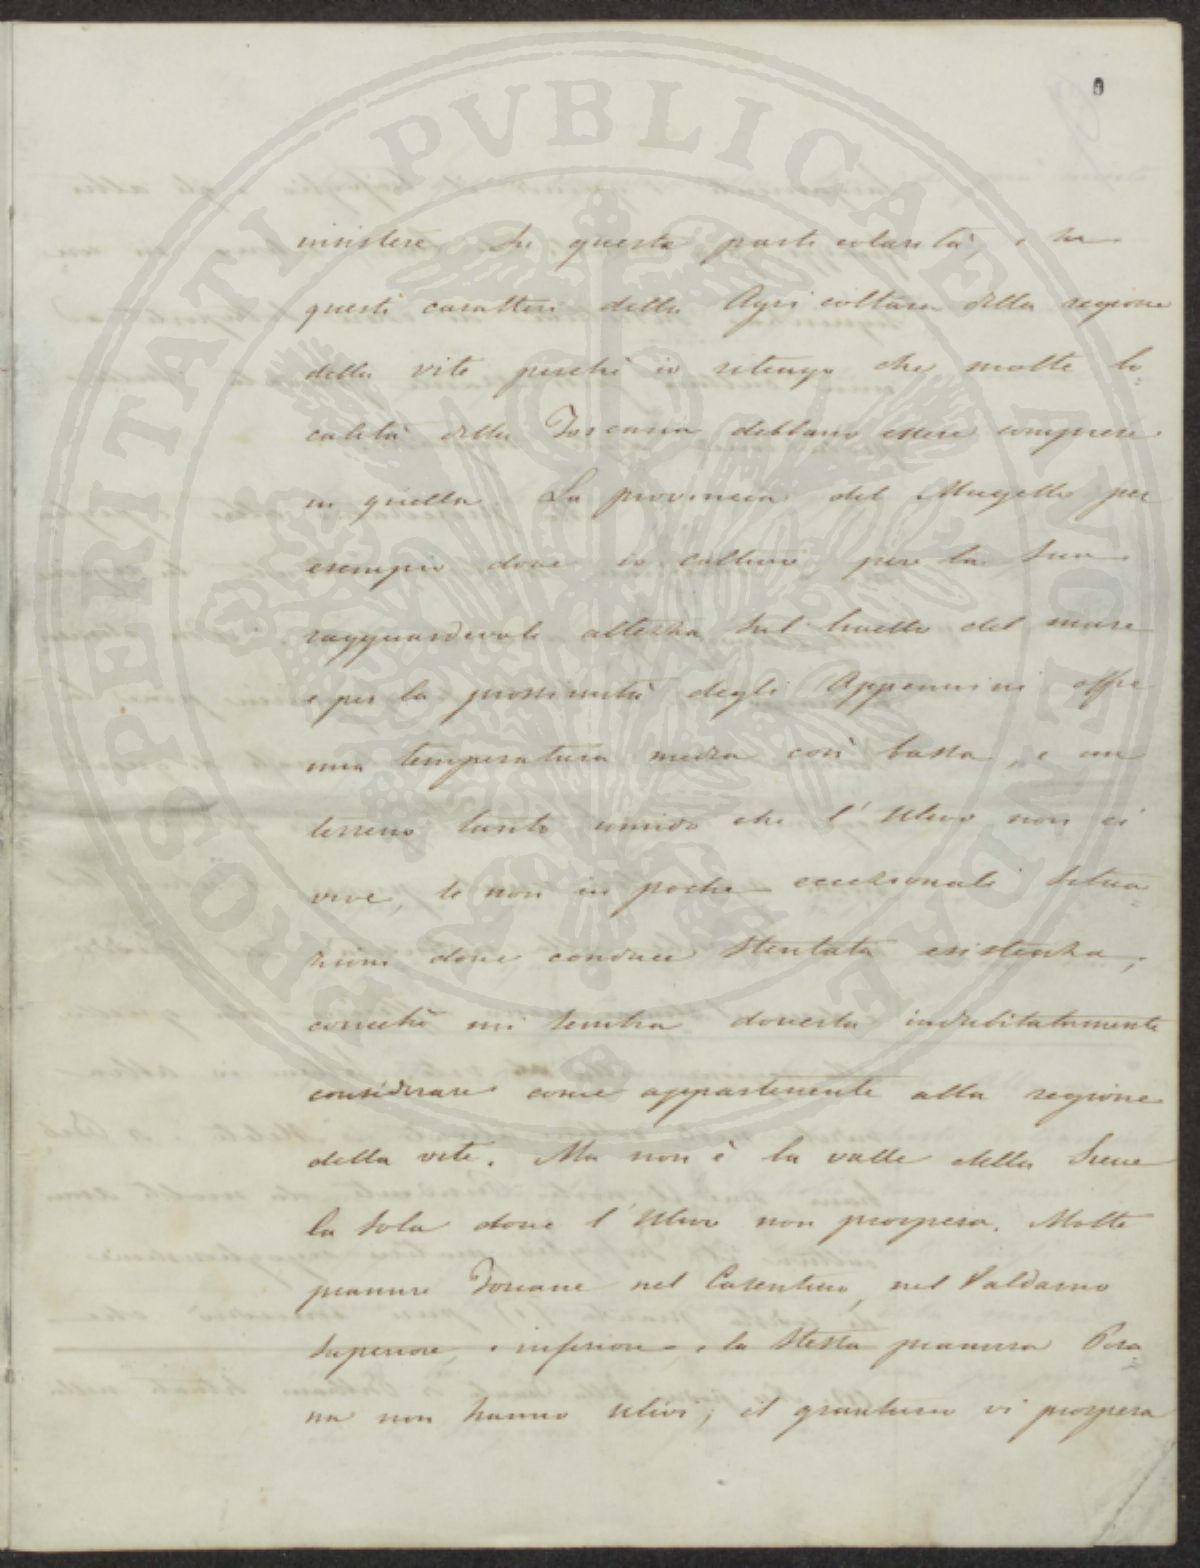 PROSPERITATI PVBLICAE AVGENDAE
insistere su questa particolarità, e su
questi caratteri della Agricoltura della regione
della vite perchè io ritengo che molte lo=
calità della Toscana debbano essere comprese
in quella. La provincia del Mugello per
esempio dove io coltivo, per la sua
ragguardevole altezza sul livello del mare
e per la prossimità degli Appennini offre
una temperatura media così bassa, e un
terreno tanto umido che l'Ulivo non ci
vive, se non in poche eccezionali situa=
zioni dove conduce stentata esistenza,
cosicchè mi sembra doversi indubitatamente
considerare come appartenente alla regione
della vite. Ma non è la valle della Sieve
la sola dove l'Ulivo non prospera. Molte
pianure Toscane nel Casentino, nel Valdarno
Superiore, e inferiore, e la stessa pianura Pisa=
na non hanno Ulivi; il granturco vi prospera